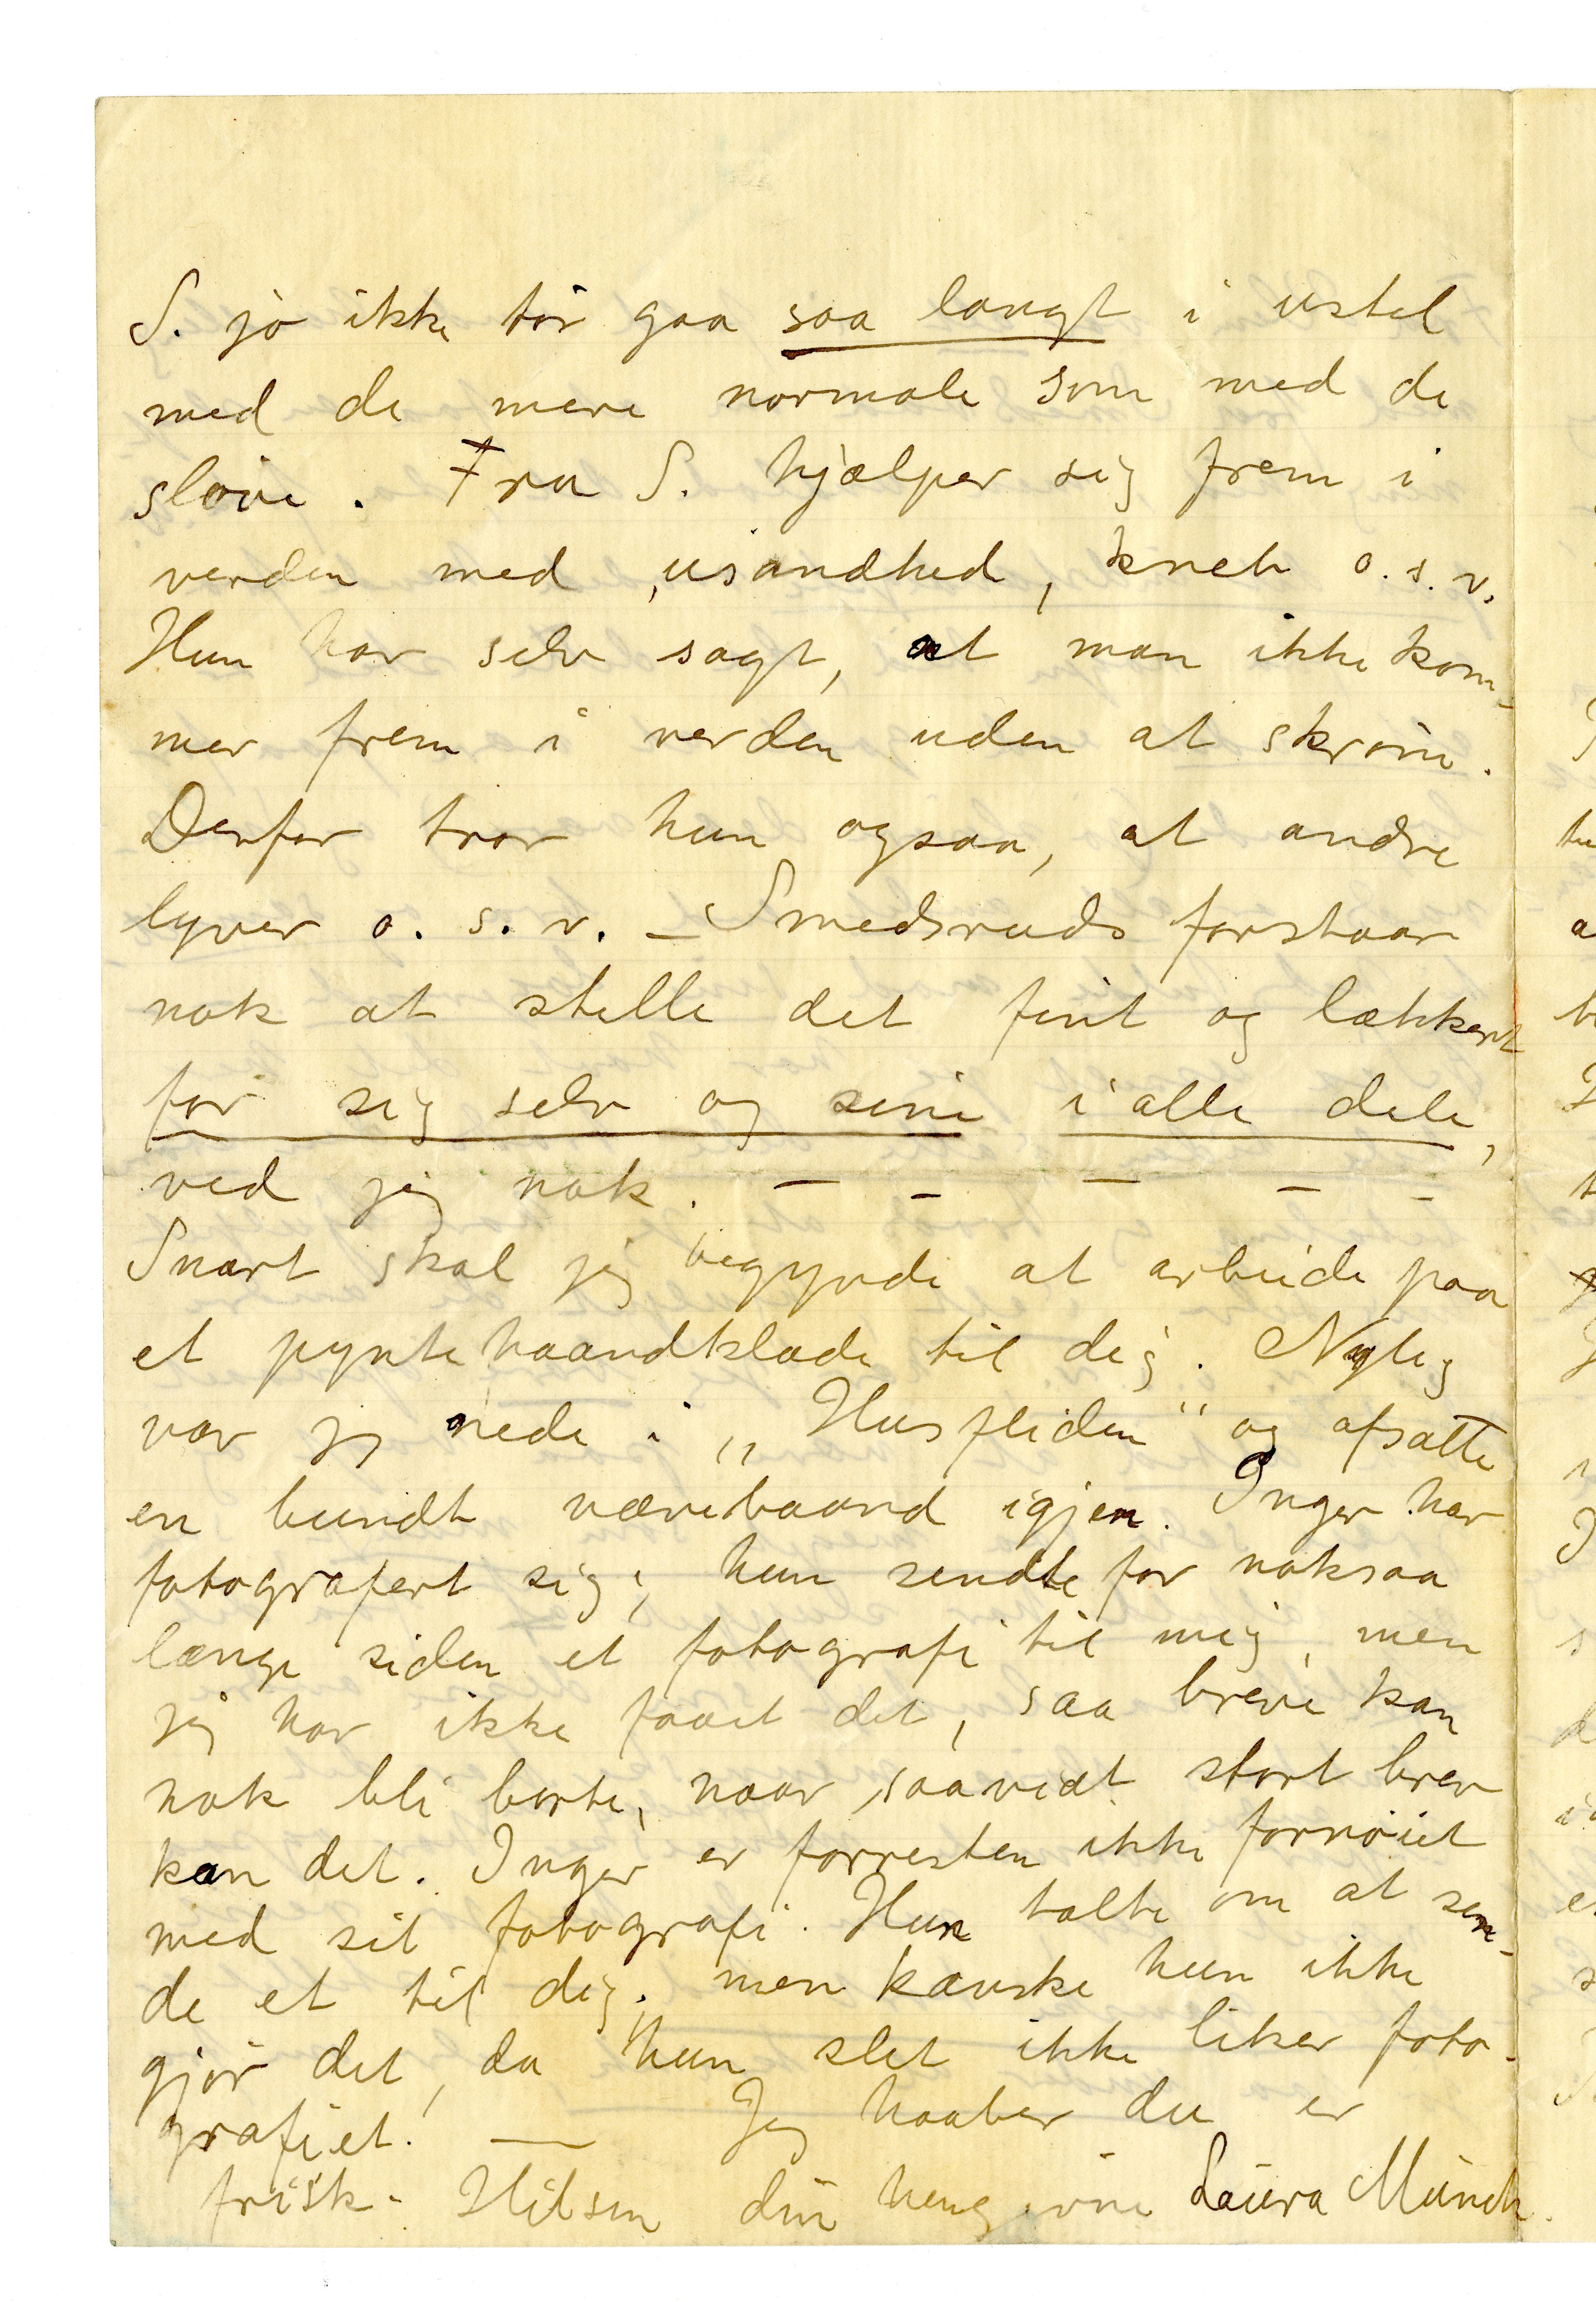 S. jo ikke tör gaa saa langt i ustel
med de mere normale som med de
slöve. Fru S. hjælper sig frem i
verden med usandhed, kneb o.s.v.
Hun har selv sagt, at man ikke kom-
mer frem i verden uden at skröne.
Derfor tror hun ogsaa, at andre
lyver o. s. v. – Smedsruds forstaar
nok at stelle det fint og lækkert
for sig selv og sine i alle dele,
ved jeg nok. – – – – –
Snart skal jeg begynde at arbeide paa
et pyntehaandklæde til dig. Nylig
var jeg nede i „Husfliden" og afsatte
en bundt vævebaand igjen. Inger har
fotografert sig; hun sendte for noksaa
længe siden et fotografi til mig, men
jeg har ikke faaet det, saa breve kan
nok bli borte, naar saavidt stort brev
kan det. Inger er forresten ikke fornöiet
med sit fotografi. Hun talte om at sen-
de et til dig, men kanske hun ikke
gjör det, da hun slet ikke liker foto-
grafiet. — Jeg haaber du er
frisk. Hilsen din hengivne Laura Munch.